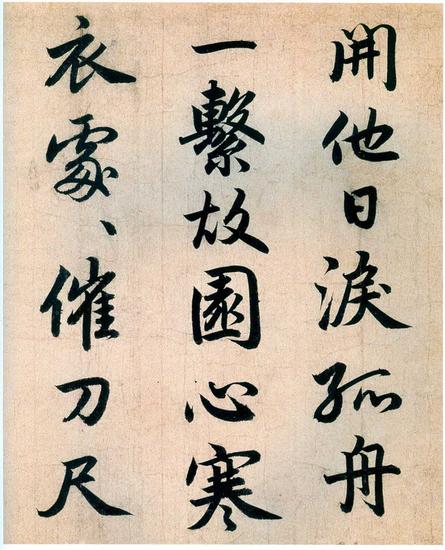 開他日淚孤舟
一繫故園心寒
衣處〻催刀尺